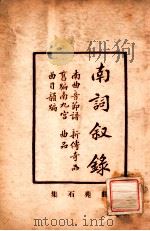 南詞叙錄
南曲音節譜 新傳奇品
舊編南九宮 曲品
目韻編
苑石集